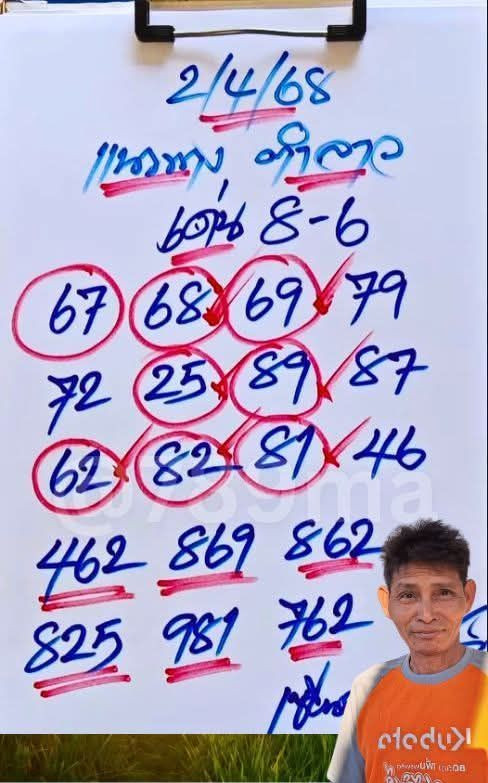 2/4/68
แนวทาง ทำลาว
เด่น 8-6
67 68 69 79
72 25 89 87
62 82 81 46
@789ma
462 869 862
825 981 762
Kubota